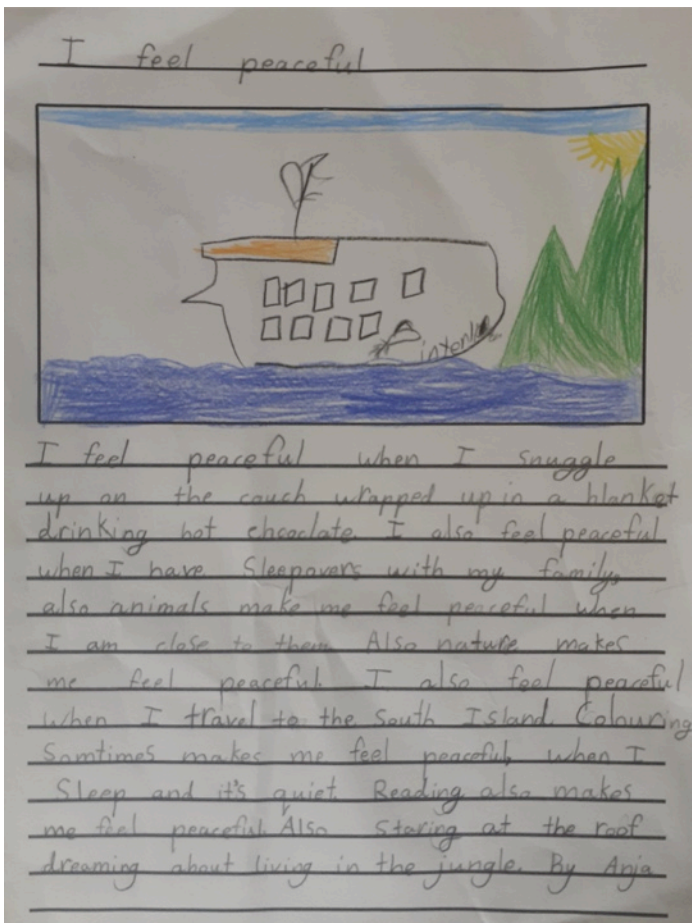 I feel peaceful
I feel peaceful when I snuggle
up on the couch wrapped up in a blanket
drinking hot chcoclate. I also feel peaceful
when I have Sleepovers with my family,
also animals make me feel peaceful when
I am close to them. Also nature makes
me feel peaceful. I also feel peaceful
when I travel to the South Island. Colouring
Somtimes makes me feel peaceful, when I
Sleep and it's quiet. Reading also makes
me feel peaceful. Also Staring at the roof
dreaming about living in the jungle. By Anja